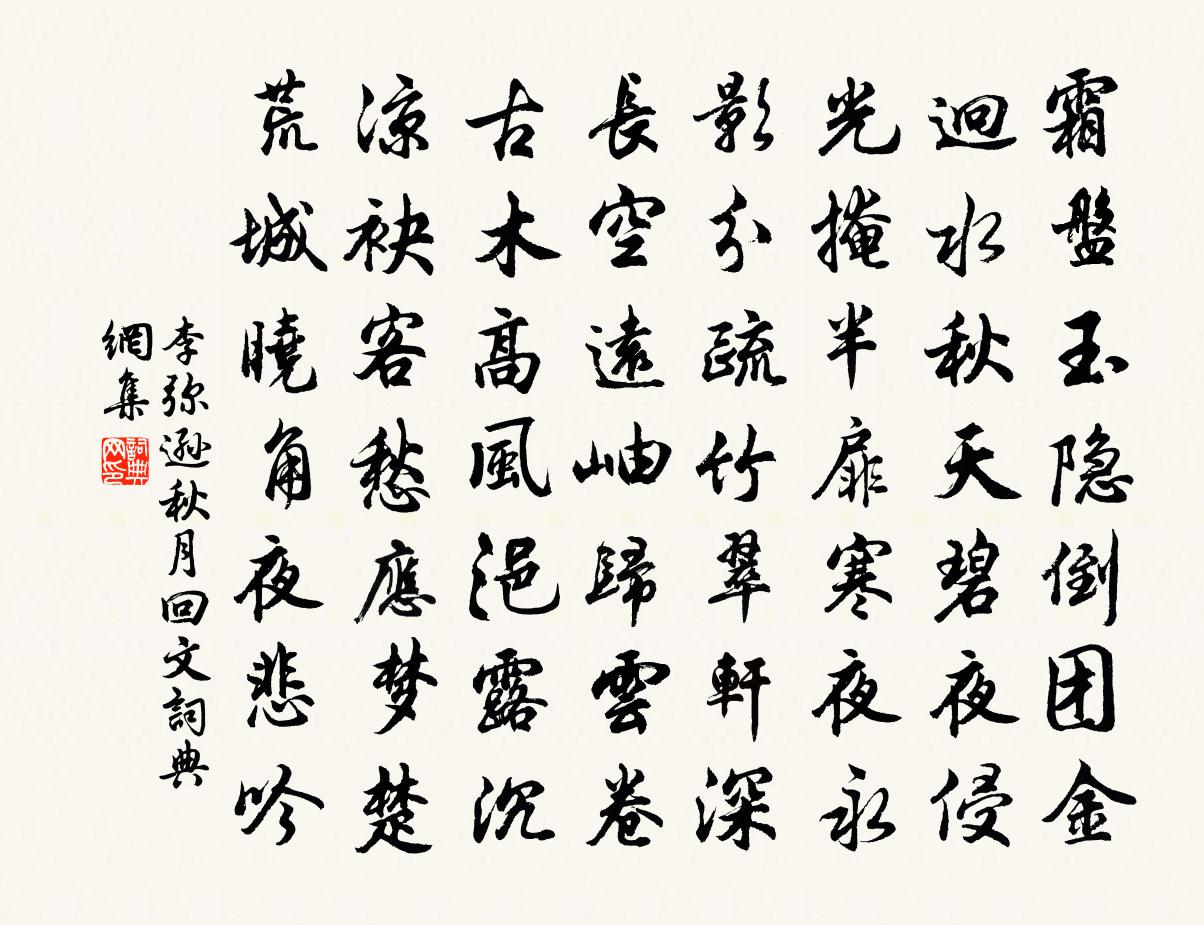 霜盤玉隐倒团金
迥水秋天碧夜侵
光掩半扉寒夜永
影分疏竹翠軒深
長空遠岫歸雲卷
古木高風浥露沉
凉袂客愁應梦楚
荒城曉角夜悲吟
李弥遜秋月回文詞典
網集
詞典網印